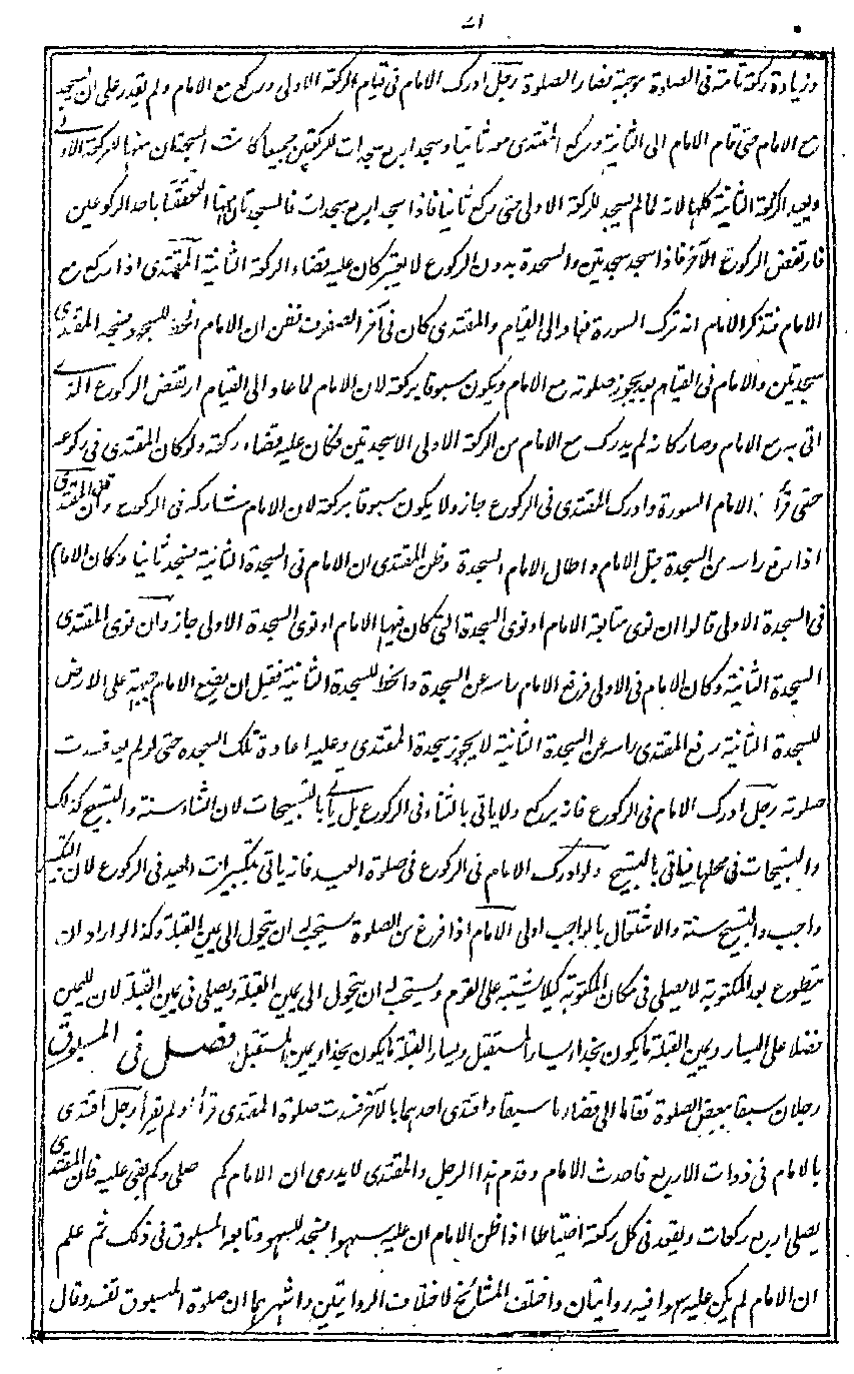 وزيادة ركعة تامة فى الصلوة موجبة فساد الصلوة رجل ادرك الامام فى قيام الركعة الاولى وركع مع الامام ولم يقدر على ان يسجد
مع الامام حتى قام الامام الى الثانية وركع المقتدى معه ثانيا وسجد اربع سجدات للركعتين جميعا كانت السجدتان منها للركعة الاولى
ويعيد الركعة الثانية كلها لانه لما لم يسجد للركعة الاولى حتى ركع ثانيا فاذا سجد اربع سجدات فالسجدتان منها التحقتا باحد الركوعين
فارتفض الركوع الآخر فاذا سجد سجدتين والسجدة بدون الركوع لا يعتبر كان عليه قضاء الركعة الثانية المقتدى اذا ركع مع
الامام فتذكر الامام انه ترك السورة فعاد الى القيام والمقتدى كان فى آخر الصفوف فظن ان الامام انحط للسجود فسجد المقتدى
سجدتين والامام فى القيام بعد يجوز صلوته مع الامام ويكون مسبوقا بركعة لان الامام لما عاد الى القيام ارتفض الركوع الذى
اتى به مع الامام وصار كانه لم يدرك مع الامام من الركعة الاولى الا سجدتين فكان عليه قضاء ركعة ولو كان المقتدى فى ركوعه
حتى قرأ الامام السورة وادرك المقتدى فى الركوع جاز ولا يكون مسبوقا بركعة لان الامام شاركه فى الركوع المقتدى
اذا رفع راسه من السجدة قبل الامام واطال الامام السجدة وظن المقتدى ان الامام فى السجدة الثانية فسجد ثانيا وكان الامام
فى السجدة الاولى قالوا ان نوى متابعة الامام او نوى السجدة التى كان فيها الامام او نوى السجدة الاولى جاز وان نوى المقتدى
السجدة الثانية وكان الامام فى الاولى فرفع الامام راسه عن السجدة وانحط للسجدة الثانية فقبل ان يضع الامام جبهته على الارض
للسجدة الثانية رفع المقتدى راسه عن السجدة الثانية لا يجوز سجدة المقتدى وعليه اعادة تلك السجدة حتى لو لم يعد فسدت
صلوته رجل ادرك الامام فى الركوع فانه يركع ولا ياتى بالثناء فى الركوع بل ياتى بالتسبيحات لان الثناء سنة والتسبيح كذلك
والتسبيحات فى محلها فياتى بالتسبيح ولو ادرك الامام فى الركوع فى صلوة العيد فانه ياتى بتكبيرات العيد فى الركوع لان التكبير
واجب والتسبيح سنة والاشتغال بالواجب اولى الامام اذا فرغ من الصلوة يستحب له ان يتحول الى يمين القبلة وكذا لو اراد ان
يتطوع بعد المكتوبة لا يصلى فى مكان المكتوبة كيلا يشتبه على القوم ويستحب له ان يتحول الى يمين القبلة ويصلى فى يمين القبلة لان لليمين
فضلا على اليسار ويمين القبلة ما يكون بحذاء يسار المستقبل ويسار القبلة ما يكون بحذاء يمين المستقبل فصل فى المسبوق
رجلان سبقا ببعض الصلوة فقاما الى قضاء ما سبقا واقتدى احدهما بالآخر فسدت صلوة المقتدى قرأ او لم يقرأ رجل اقتدى
بالامام فى ذوات الاربع فاحدث الامام وقدم هذا الرجل والمقتدى لا يدرى ان الامام كم صلى وكم بقى عليه فان المقتدى
يصلى اربع ركعات ويقعد فى كل ركعة احتياطا اذا ظن الامام ان عليه سهوا فسجد للسهو وتابعه المسبوق فى ذلك ثم علم
ان الامام لم يكن عليه سهو فيه روايتان واختلف المشائخ لاختلاف الروايتين واشهرهما ان صلوة المسبوق تفسد وقال